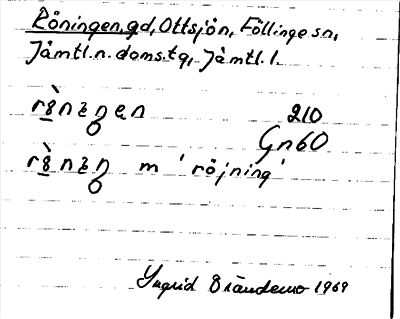 Röningen, gd, Ottsjön, Föllinge sn,
Jämtl. n. doms. tg, Jämtl. l.
210
Gn 60
m 'röjning'
Ingrid Brändemo 1969